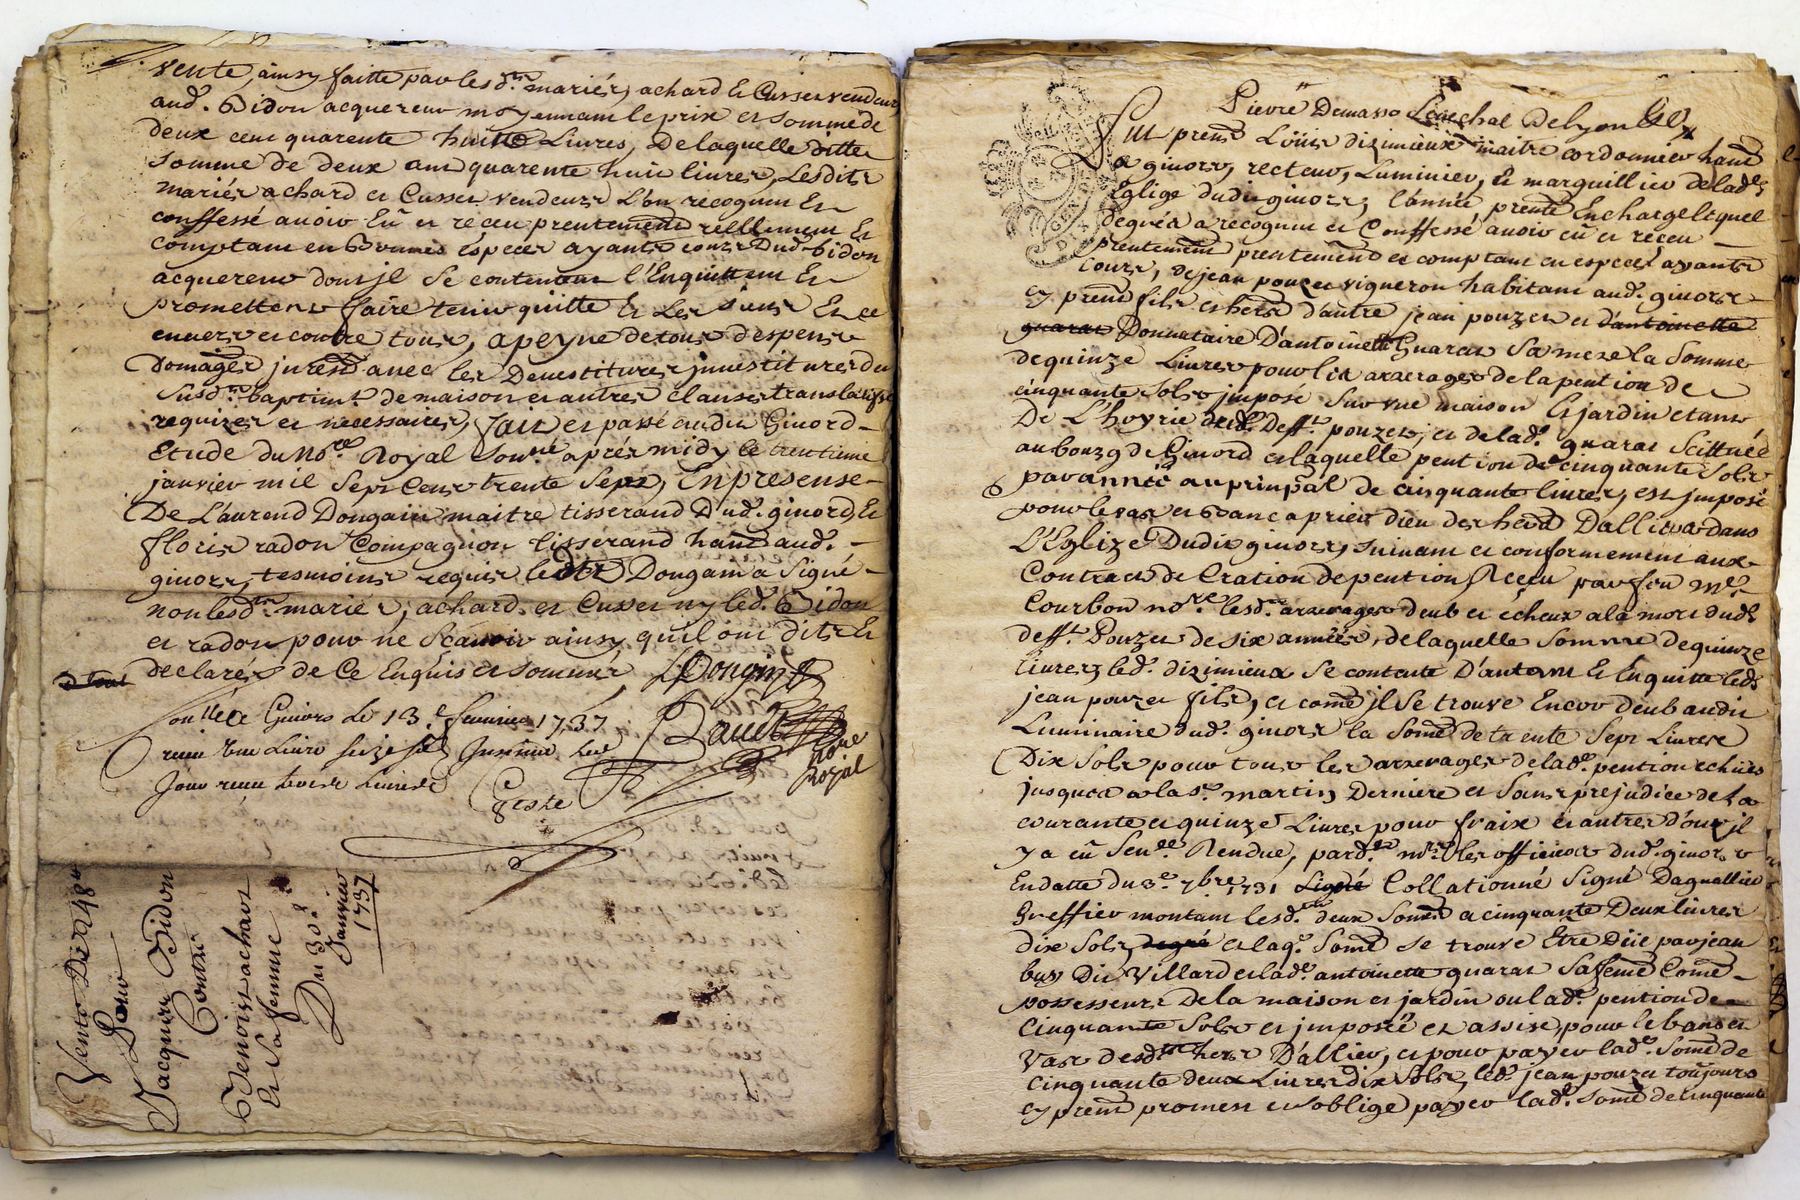 vente, ainsy faitte par lesd.ts mariés, achard et Cusset vendeurs
aud.t Bidon acquereur moyennam le prix et somme de
deux cent quarente huitte Livres, de laquelle ditte
somme de deux cent quarente huit livres, Lesdits
mariés achard et Cusset vendeurs L'on recognu Et
conffessé avoir Eû et receu prentement reellement Et
comptant en Bonnes Especes ayants cours Dud.t Bidon
acquereur dont jl se contentent l'Enquittent Et
promettent faire tenir quitte Et Les siens Et ce
envers et contre tous, apeyne de tous despens
Domages jnrest avec les Devestitures jnvestitures du
susd.t de maison et autres clauses translatifs
requises et necessaires, fait et passé audit Givord
Etude du No.re Royal sou.né aprés midy le trentieme
janvier mil sept cent trente sept, En presense
De L'aurend Dongain maitre tisserand Dud. givord, Et
floris radon Compagnon tisserand hant aud.
givors, tesmoins requis led.t Dongain a signé
non lesd.ts mariés, achard et Cusset ny led. Bidon
et radon pour ne scavoir ainsy quil ont dit et
declarés de Ce Enquis et sommés LDongin
Conllé a Givors le 13.e fevrier 1737
receu une Livre seize
Jour receu trois Livres
no.re Royal
Vente De 248#
Pour
Jacques Bidon
Contre
Benoist achard
Et Sa femme
Du 30.e
Janvier
1737
Pierre Demasso Senechal De Lyon
Fut prent Loüis dizimieux maitre cordonnier hant
a givors, recteur, Luminier, et marguillier de lad.
Eglize dudit givors, l'année prente En charge lequel
degréá a recognu et Conffessé avoir eû et receu
prentement prentement et comptant en especes ayants
cours, de jean pouzet vigneron habitant aud. givors
cy prent fils et hers d'autre jean pouzet et d'antoinette
guaras Donnataire D'antoinette Guaras Sa mere la Somme
de quinze Livres pour les arrerages de la pention de
cinquante sols jmposé sur une maison Et jardin etant
De L'hoyrie dud. Deff.t pouzet, et de lad. guaras Scittuée
au bourg de Givord et laquelle pention de cinquante sols
par année au prinpal de cinquante livres, est jmposé
pour le vas et banc a prier dieu des hers Dallier dans
L'Eglize Dudit givors, suivant et conformement aux
Contracts de Cration de pention Receu par feu M.e
Courbon no.re lesd. arrerages deub et écheus a la mort dud.
deff.t Pouzet de six années, de laquelle somme de quinze
livres led. dizimieux se contente D'autant Et Enquitte led.
jean pouzet fils, et comé jl se trouve Encor deub audit
Luminaire dud. givors la somé de trente sept Livres
Dix Sols pour tous les arrerages de lad. pention echües
jusques a la S.t martin Derniere et Sans prejudice de la
courante et quinze Livres pour fraix et autres d'ou jl
y a eû Sen.ce Rendue, pard. mrs les officiers dud. givors
En datte du 3.e 7bre 1731 Signé Collationné Signé Daguallier
Greffier montant lesd. deux somés a cinquante Deux livres
dix Sols degré et laq. somé se trouve Etre Düe par jean
buy Dit Villard et lad. antoinette guaras Sa femé Comé
possesseurs De la maison et jardin ou lad. pention de
Cinquante sols et jmposée et assise, pour le banc et
vas desd. hers D'allier, et pour payer lad. somé de
cinquante deux Livres dix sols, led. jean pouzet toujours
cy prent promet et soblige payer lad. somé de cinquante